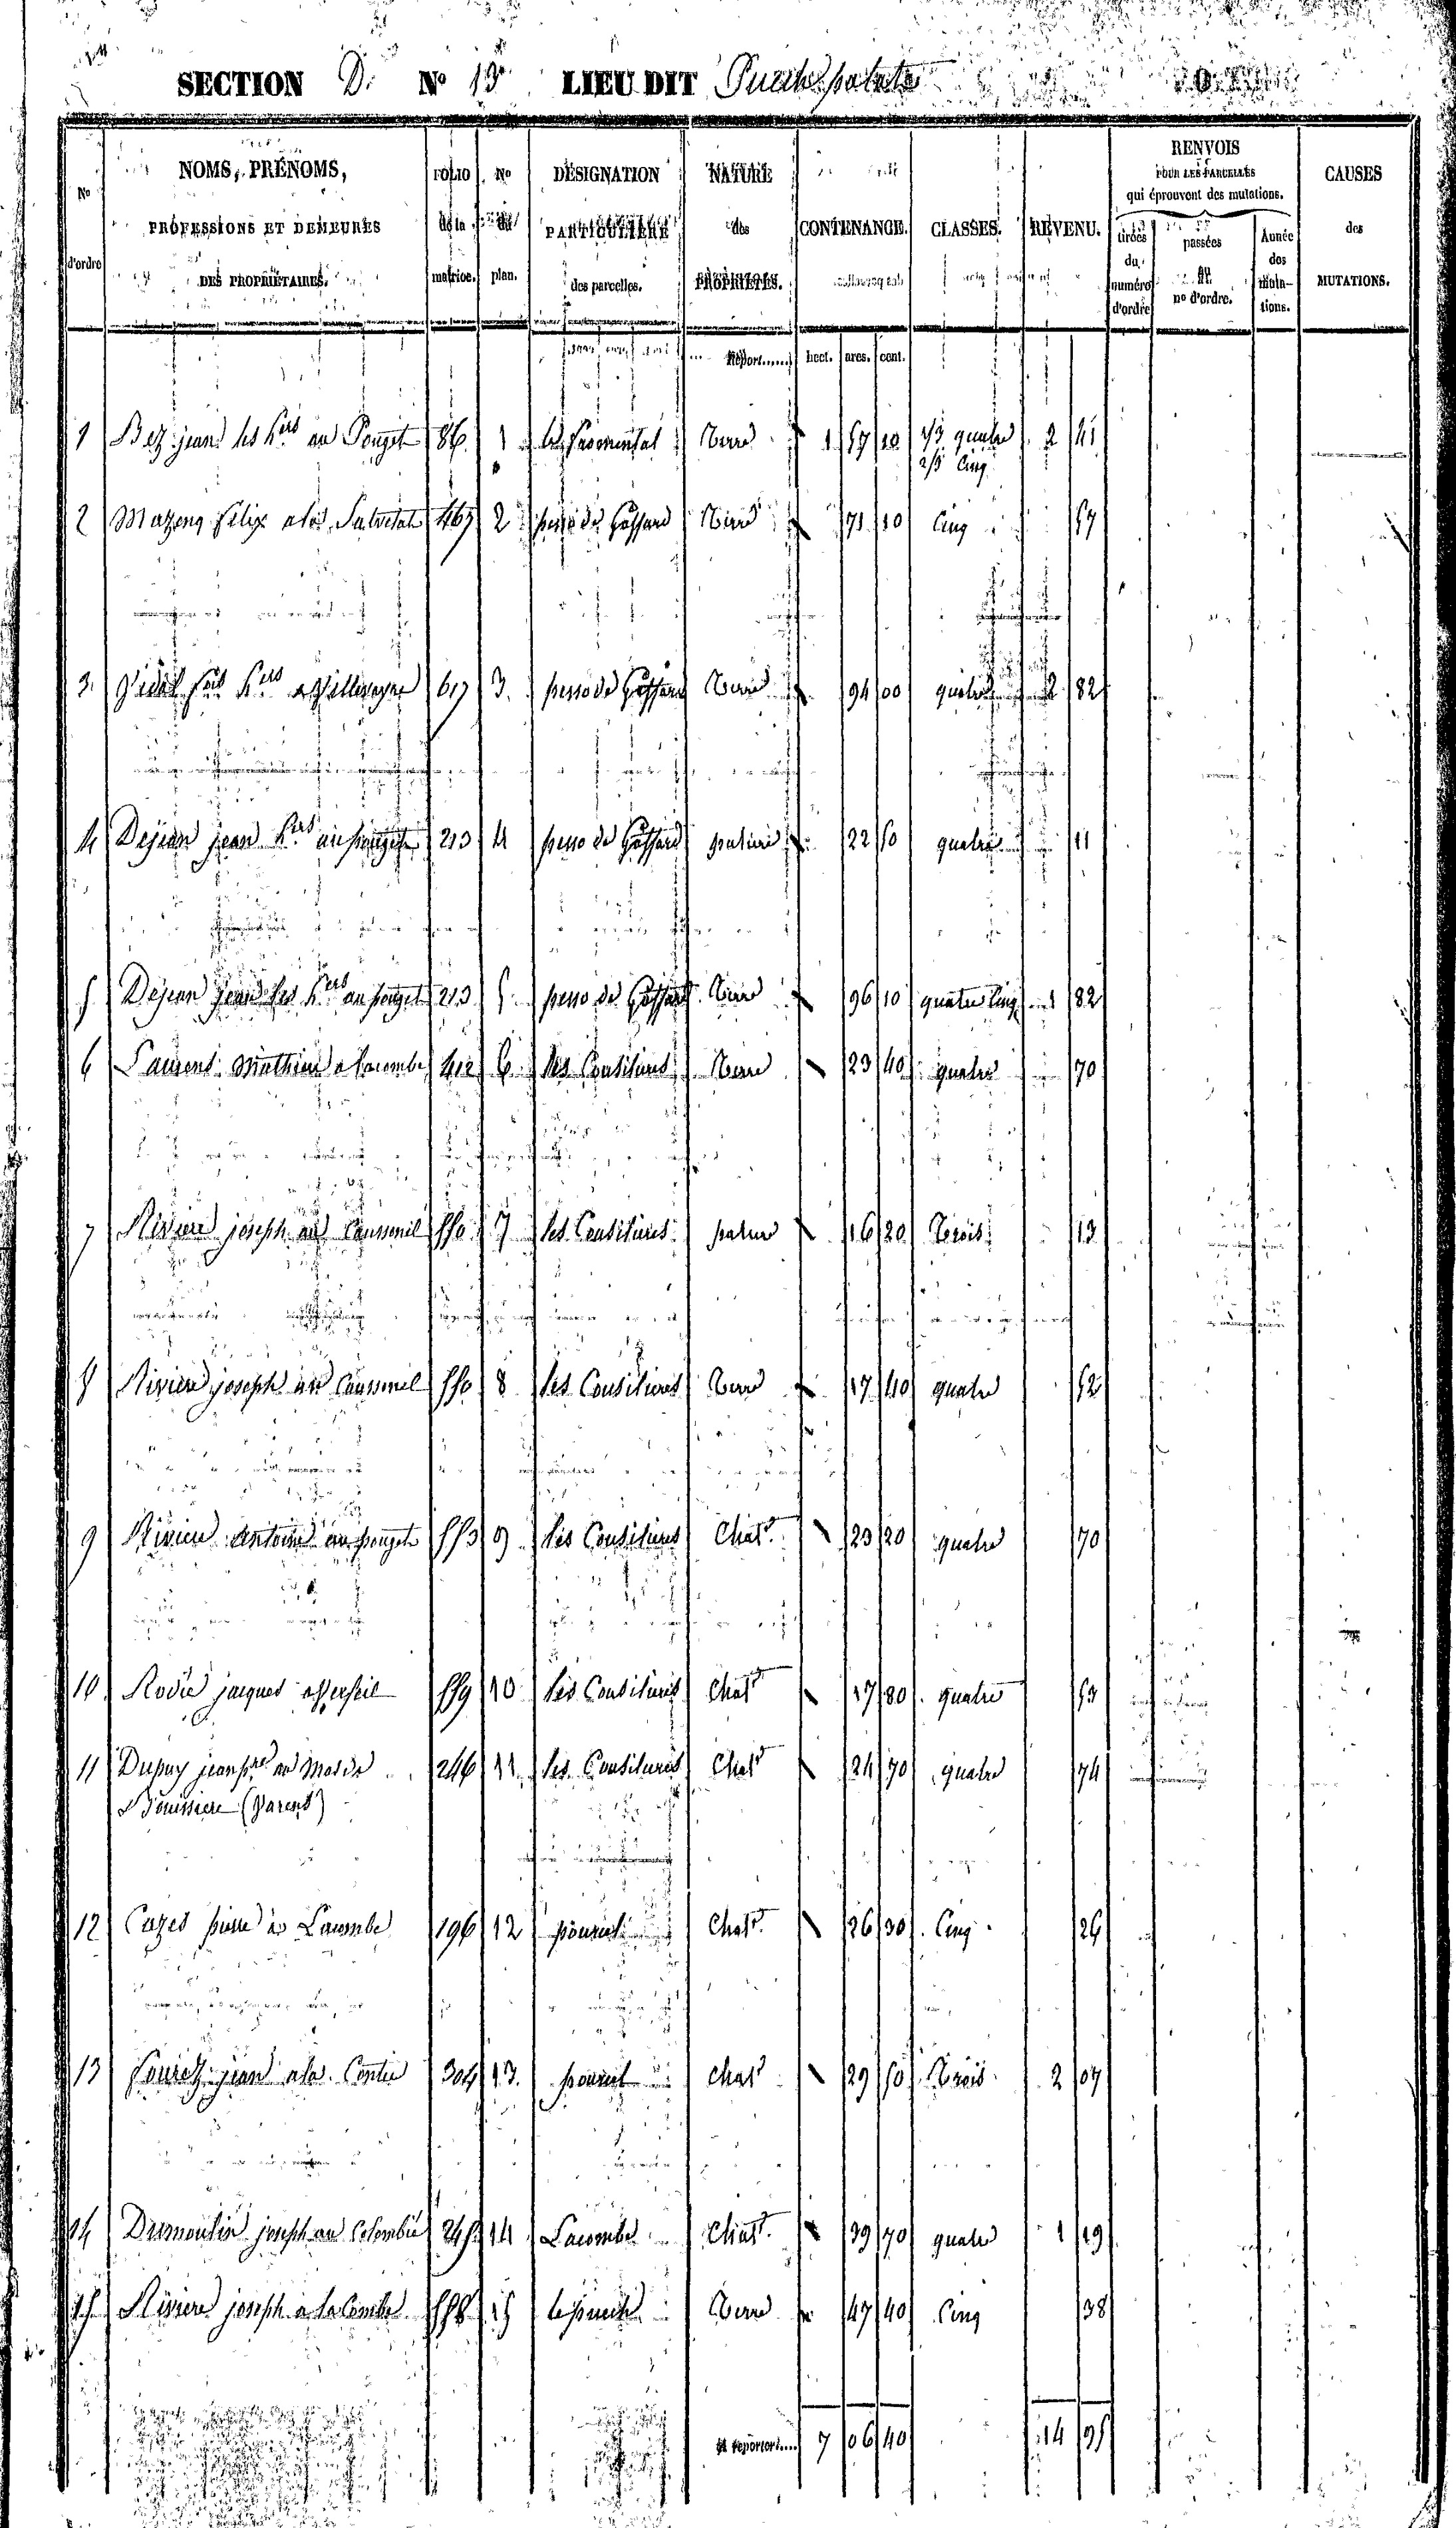 SECTION D. No 13 LIEU DIT
No d'ordre
NOMS, PRÉNOMS, PROFESSIONS ET DEMEURES DES PROPRIÉTAIRES.
FOLIO de la matrice.
No du plan.
DÉSIGNATION PARTICULIÈRE des parcelles.
NATURE des PROPRIÉTÉS.
CONTENANCE.
CLASSES.
REVENU.
RENVOIS POUR LES PARCELLES qui éprouvent des mutations.
tirées du numéro d'ordre
passées au no d'ordre.
Année des mutations.
CAUSES des MUTATIONS.
Report...... hect. ares. cent.
1 Bez jean les hers au Pouget 86 1 Terre 1 57 10 1/3 quatre 2 41
2/3 Cinq
2 Mazenq felix a la Salvetat 467 2 Terre 71 10 Cinq 57
3 hers 617 3 Terre 94 00 quatre 2 82
4 Dejean jean hers au pouget 213 4 pature 22 50 quatre 11
5 Dejean jean les hers au pouget 213 5 Terre 96 10 quatre Cinq 1 82
6 Laurens Mathieu a Lacombe 412 6 les Terre 23 40 quatre 70
7 Riviere joseph au Caussonel 550 7 les pature 16 20 Trois 13
8 Riviere joseph au Caussonel 550 8 les Terre 17 40 quatre 52
9 Riviere Antoine au pouget 553 9 les Chat. 23 20 quatre 70
10 jacques 559 10 les Chat 17 80 quatre 53
11 Dupuy jean pre au Mas de 246 11 les Chat 24 70 quatre 74
(Varens)
12 Cazes pierre a Lacombe 196 12 Chat. 26 30 Cinq 26
13 jean a la 304 13 Chat 29 50 Trois 2 07
14 Dumoulin joseph au Colombié 245 14 Lacombe Chat. 39 70 quatre 1 19
15 Riviere joseph a la Combe 558 15 le puech Terre 47 40 Cinq 38
A reporter.... 7 06 40 14 95